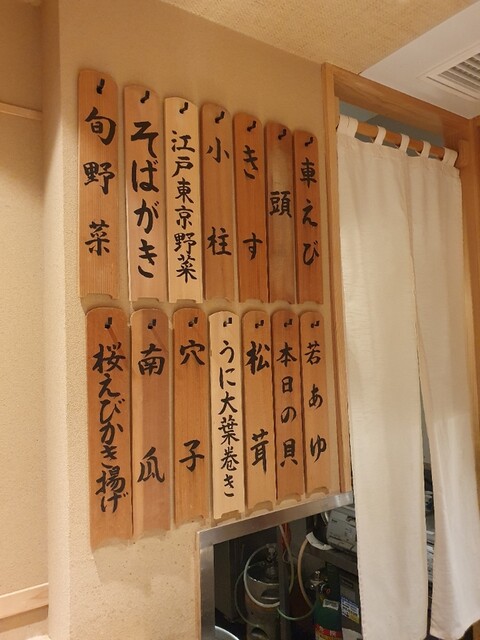 車えび
頭
きす
小柱
江戸東京野菜
そばがき
旬野菜
若あゆ
本日の貝
松茸
うに大葉巻き
穴子
南瓜
桜えびかき揚げ